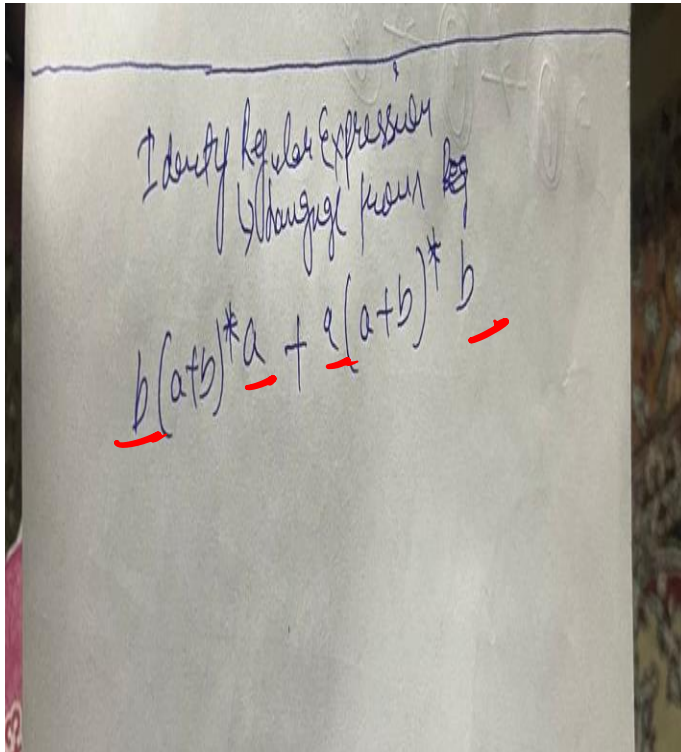 Identify Regular Expression
Language from
b(a+b)*a + a(a+b)* b